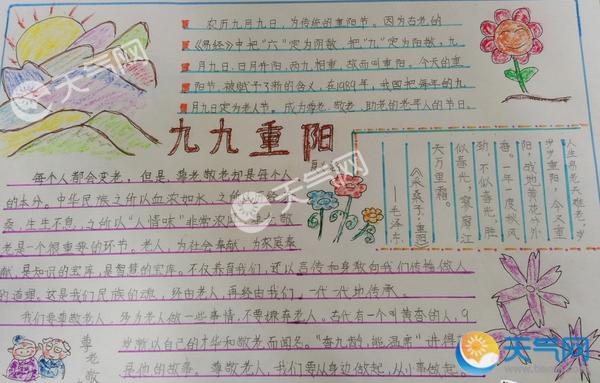 农历九月九日，为传统的重阳节。因为古老的
《易经》中把"六"定为阴数，把"九"定为阳数，九
月九日，日月并阳，两九相重，故而叫重阳。今天的重
阳节，被赋予了新的含义，在1989年，我国把每年的九
月九日定为老人节。成为尊老、敬老、助老的老年人的节日。
九九重阳
人生易老天难老，岁
岁重阳。今又重
阳，战地黄花分外
香。一年一度秋风
劲，不似春光。胜
似春光，寥廓江
天万里霜。
《采桑子·重阳》
——毛泽东
每个人都会变老，但是，尊老敬老却是每个人
的本分。中华民族之所以血浓如水，之所以
息，生生不息，之所以"人情味"非常浓 敬
老是一个很重要的环节。老人，为社会奉献，为家庭奉
献，是知识的宝库，是智慧的宝库。不仅养育我们，还以言传和身教向我们传输做人
的道理。这是我们民族的魂，经由老人，再经由我们一代一代地传承。
我们要尊敬老人，多为老人做一些事情，不要嫌弃老人。古代有一个叫黄香的人，9
岁就以自己的才华和敬老而闻名，"香九龄，能温席"讲得
是他的故事。尊敬老人，我们要从身边做起，从小事做起。
尊老敬
天气网
天气网
天气网
天气网